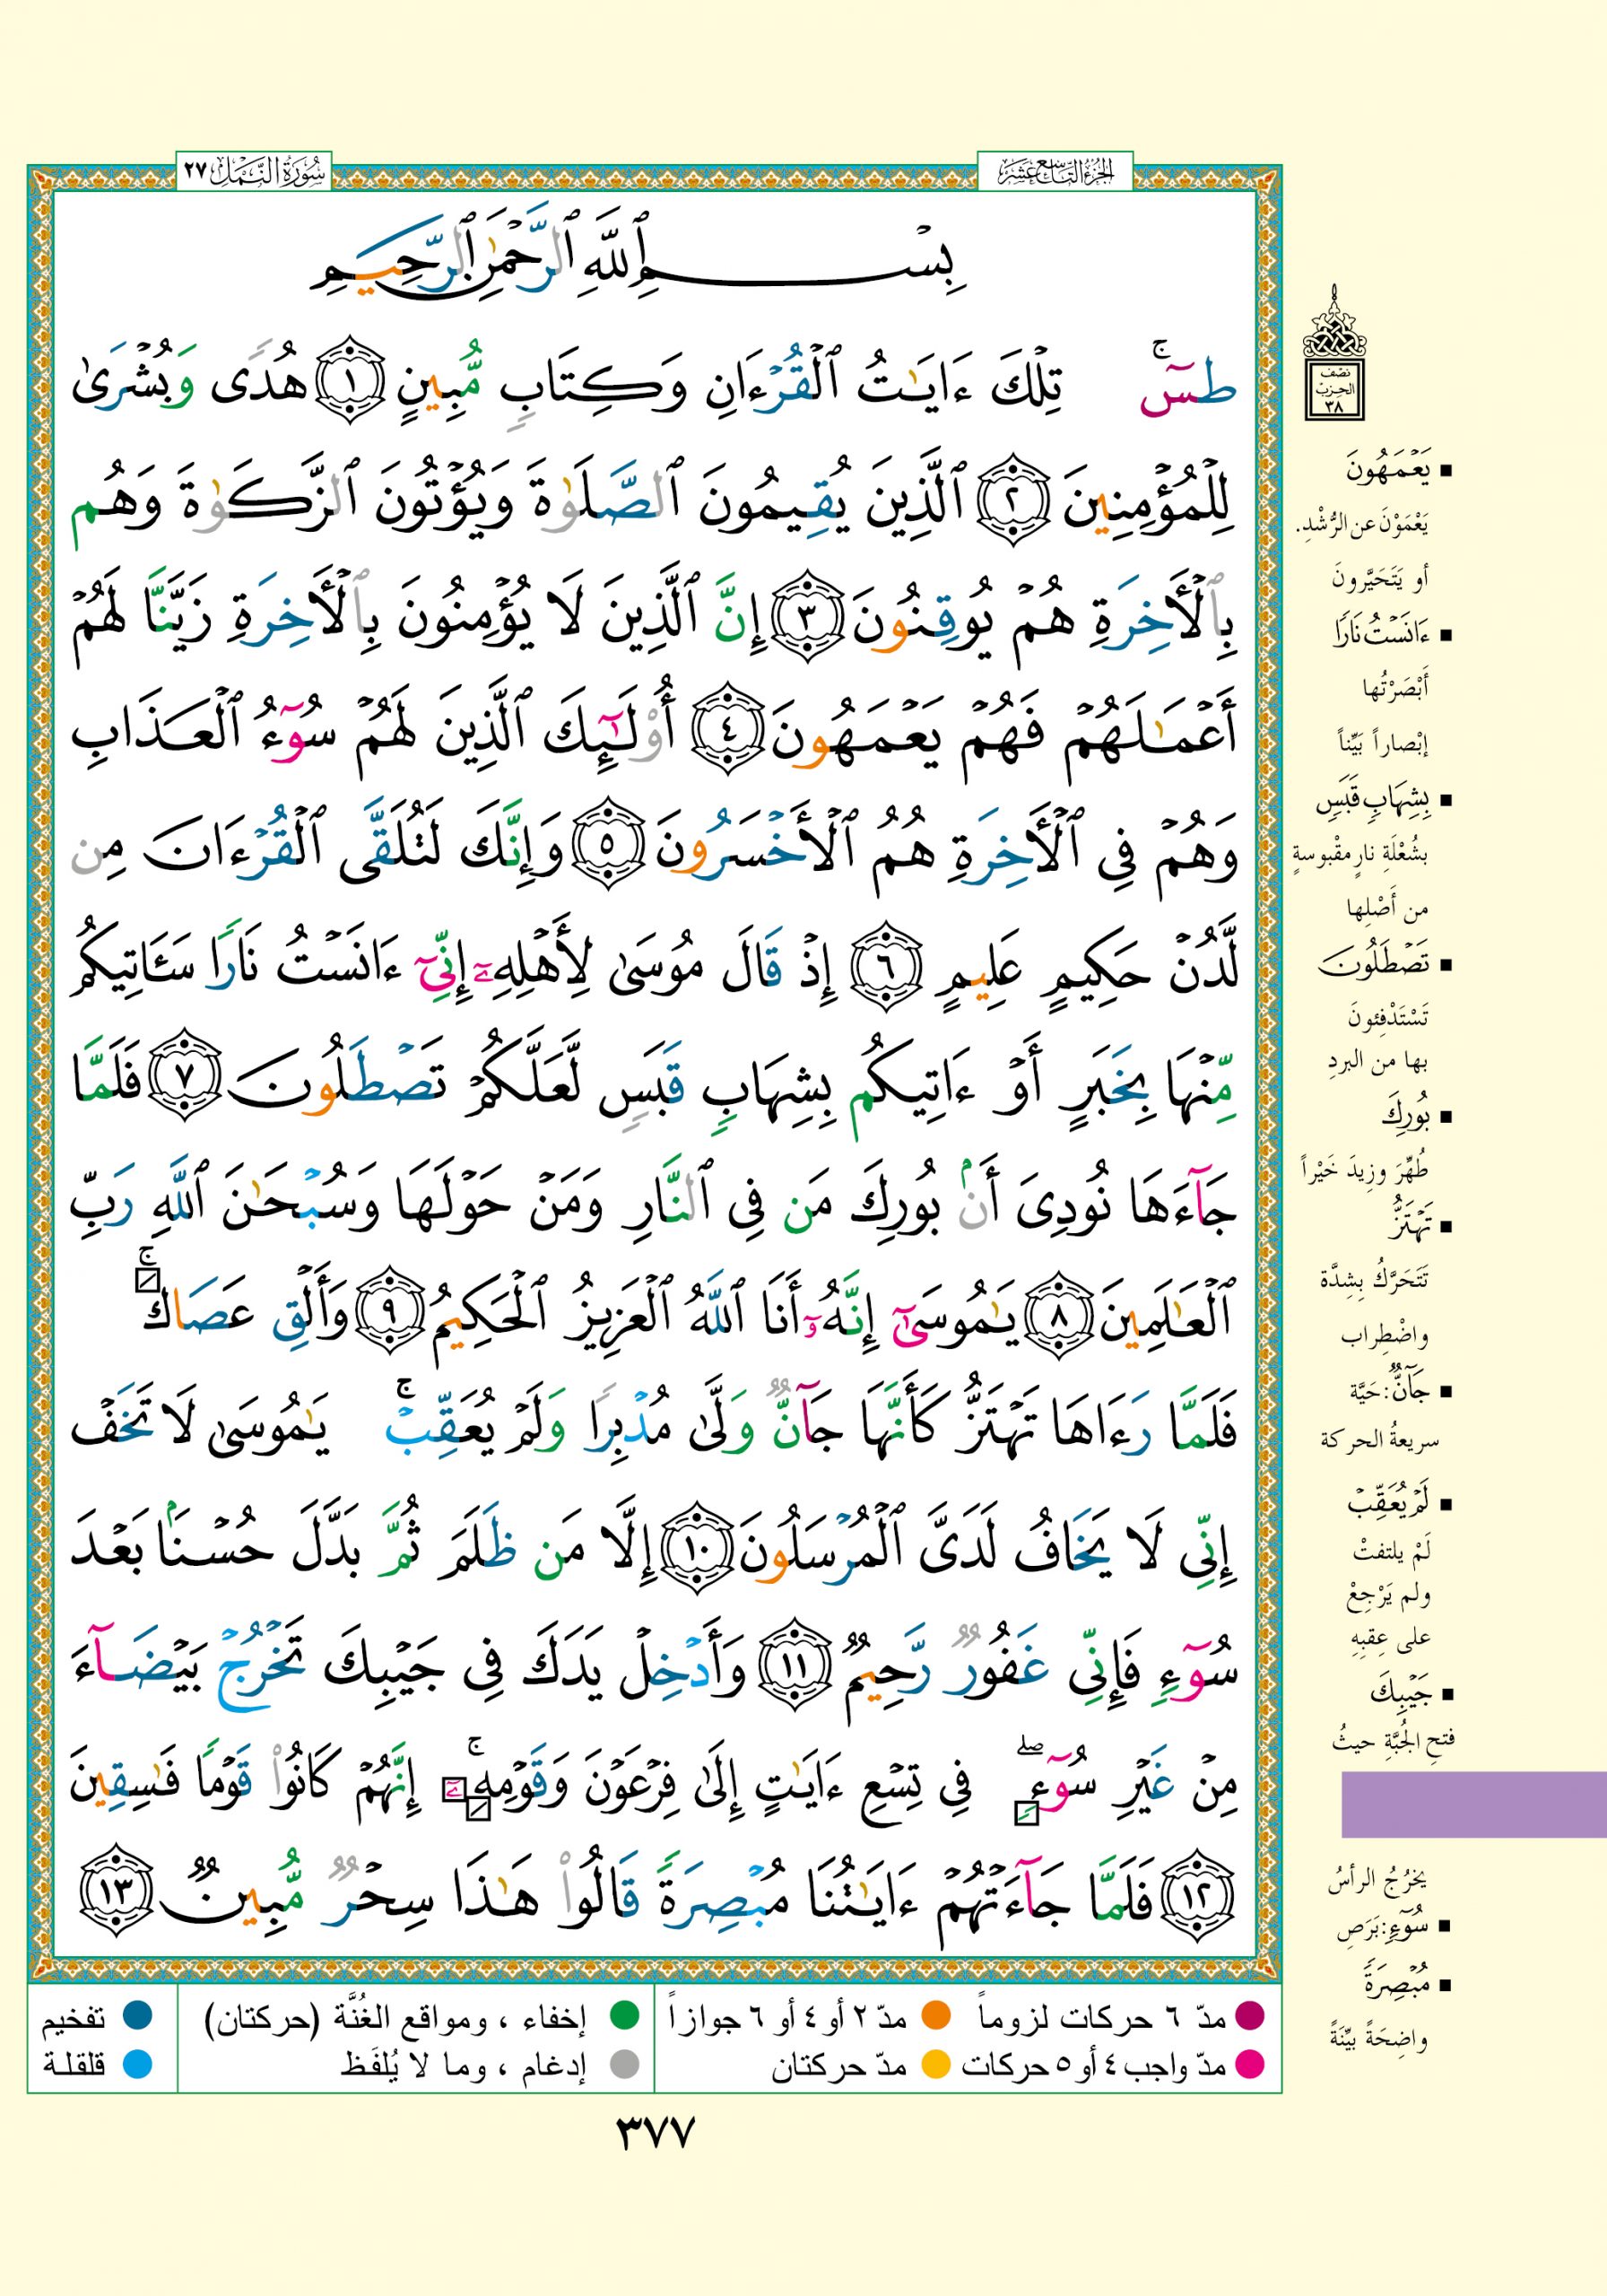 الجزء التاسع عشر
سُورَةُ النَّمْلِ ٢٧
بِسْمِ ٱللَّهِ ٱلرَّحْمَٰنِ ٱلرَّحِيمِ
طسٓ ۚ تِلْكَ ءَايَٰتُ ٱلْقُرْءَانِ وَكِتَابٍ مُّبِينٍ ﴿١﴾ هُدًى وَبُشْرَىٰ
لِلْمُؤْمِنِينَ ﴿٢﴾ ٱلَّذِينَ يُقِيمُونَ ٱلصَّلَوٰةَ وَيُؤْتُونَ ٱلزَّكَوٰةَ وَهُم
بِٱلْأَخِرَةِ هُمْ يُوقِنُونَ ﴿٣﴾ إِنَّ ٱلَّذِينَ لَا يُؤْمِنُونَ بِٱلْأَخِرَةِ زَيَّنَّا لَهُمْ
أَعْمَٰلَهُمْ فَهُمْ يَعْمَهُونَ ﴿٤﴾ أُوْلَٰٓئِكَ ٱلَّذِينَ لَهُمْ سُوٓءُ ٱلْعَذَابِ
وَهُمْ فِى ٱلْأَخِرَةِ هُمُ ٱلْأَخْسَرُونَ ﴿٥﴾ وَإِنَّكَ لَتُلَقَّى ٱلْقُرْءَانَ مِن
لَّدُنْ حَكِيمٍ عَلِيمٍ ﴿٦﴾ إِذْ قَالَ مُوسَىٰ لِأَهْلِهِۦٓ إِنِّىٓ ءَانَسْتُ نَارًا سَـَٔاتِيكُم
مِّنْهَا بِخَبَرٍ أَوْ ءَاتِيكُم بِشِهَابٍ قَبَسٍ لَّعَلَّكُمْ تَصْطَلُونَ ﴿٧﴾ فَلَمَّا
جَآءَهَا نُودِىَ أَنۢ بُورِكَ مَن فِى ٱلنَّارِ وَمَنْ حَوْلَهَا وَسُبْحَٰنَ ٱللَّهِ رَبِّ
ٱلْعَٰلَمِينَ ﴿٨﴾ يَٰمُوسَىٰٓ إِنَّهُۥٓ أَنَا ٱللَّهُ ٱلْعَزِيزُ ٱلْحَكِيمُ ﴿٩﴾ وَأَلْقِ عَصَاكَ ۚ
فَلَمَّا رَءَاهَا تَهْتَزُّ كَأَنَّهَا جَآنٌّ وَلَّىٰ مُدْبِرًا وَلَمْ يُعَقِّبْ ۚ يَٰمُوسَىٰ لَا تَخَفْ
إِنِّى لَا يَخَافُ لَدَىَّ ٱلْمُرْسَلُونَ ﴿١٠﴾ إِلَّا مَن ظَلَمَ ثُمَّ بَدَّلَ حُسْنًۢا بَعْدَ
سُوٓءٍ فَإِنِّى غَفُورٌ رَّحِيمٌ ﴿١١﴾ وَأَدْخِلْ يَدَكَ فِى جَيْبِكَ تَخْرُجْ بَيْضَآءَ
مِنْ غَيْرِ سُوٓءٍ ۖ فِى تِسْعِ ءَايَٰتٍ إِلَىٰ فِرْعَوْنَ وَقَوْمِهِۦٓ ۚ إِنَّهُمْ كَانُوا۟ قَوْمًا فَٰسِقِينَ
﴿١٢﴾ فَلَمَّا جَآءَتْهُمْ ءَايَٰتُنَا مُبْصِرَةً قَالُوا۟ هَٰذَا سِحْرٌ مُّبِينٌ ﴿١٣﴾
نصف
الحزب
٣٨
▪ يَعْمَهُونَ
يَعْمَوْنَ عن الرُّشْدِ.
أو يَتَحَيَّرونَ
▪ ءَانَسْتُ نَارًا
أَبْصَرْتُها
إبْصاراً بَيِّناً
▪ بِشِهَابٍ قَبَسٍ
بشُعْلَةِ نارٍ مقْبوسةٍ
من أَصْلِها
▪ تَصْطَلُونَ
تَسْتَدْفِئونَ
بها من البردِ
▪ بُورِكَ
طُهِّرَ وزِيدَ خَيْراً
▪ تَهْتَزُّ
تَتَحَرَّكُ بِشِدَّة
واضْطِراب
▪ جَآنٌّ: حَيَّة
سريعةُ الحركة
▪ لَمْ يُعَقِّبْ
لَمْ يلتفتْ
ولم يَرْجِعْ
على عِقبِهِ
▪ جَيْبِكَ
فتحِ الجُبَّةِ حيثُ
يخرُجُ الرأسُ
▪ سُوٓءٍ: بَرَصٍ
▪ مُبْصِرَةً
واضِحَةً بيِّنَةً
مدّ ٦ حركات لزوماً
مدّ ٢ أو ٤ أو ٦ جوازاً
إخفاء ، ومواقع الغُنَّة (حركتان)
تفخيم
مدّ واجب ٤ أو ٥ حركات
مدّ حركتان
إدغام ، وما لا يُلفَظ
قلقلة
٣٧٧